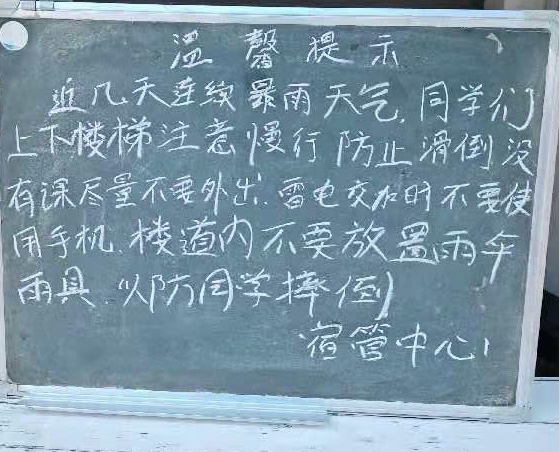 温馨提示
近几天连续暴雨天气,同学们
上下楼梯注意慢行防止滑倒没
有课尽量不要外出.雷电交加时不要使
用手机.楼道内不要放置雨伞
雨具.以防同学摔倒
宿管中心